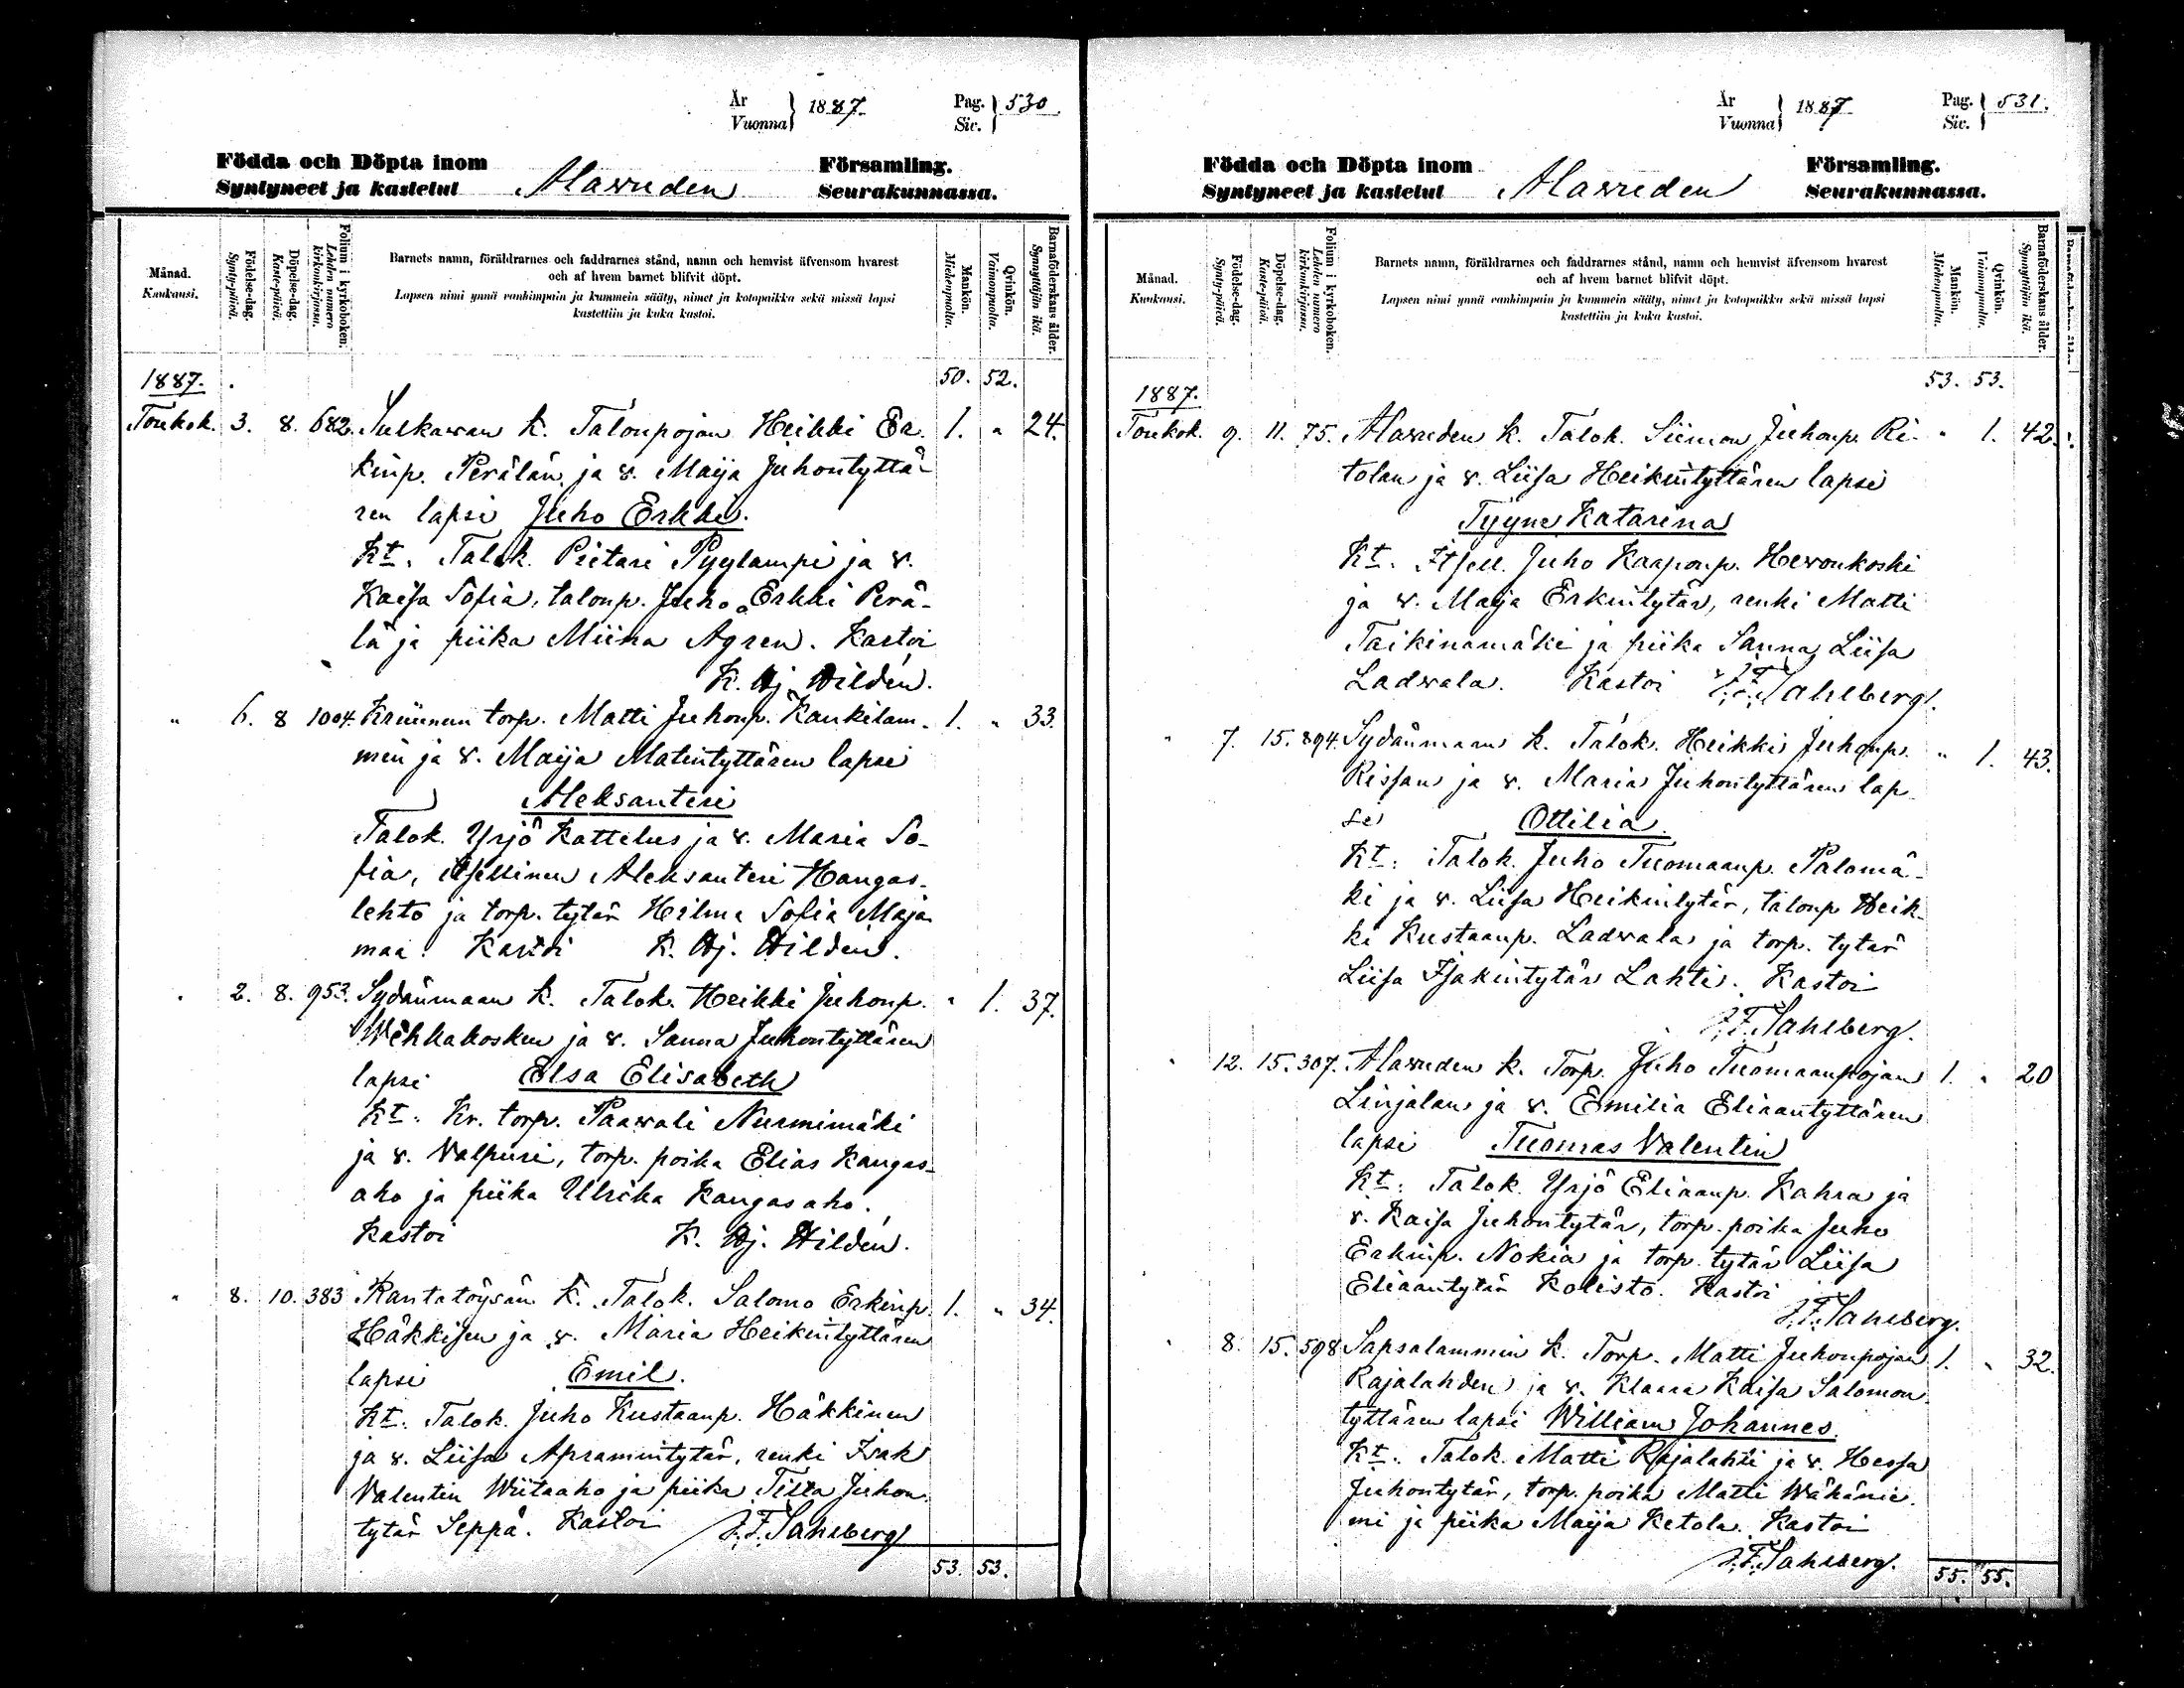 År
Vuonna } 1887. Pag.
Siv. } 530.
Födda och Döpta inom Församling.
Syntyneet ja kastetut Alavuden Seurakunnassa.
Månad.
Kuukausi.
Födelse-dag.
Synty-päivä.
Döpelse-dag.
Kaste-päivä.
Folium i kyrkoboken.
Lehden numero
kirkonkirjassa.
Barnets namn, föräldrarnes och faddrarnes stånd, namn och hemvist äfvensom hvarest
och af hvem barnet blifvit döpt.
Lapsen nimi ynnä vanhimpain ja kummein sääty, nimet ja kotopaikka sekä missä lapsi
kastettiin ja kuka kastoi.
Mankön.
Miehenpuolta.
Qvinkön.
Vaimonpuolta.
Barnaföderskans ålder.
Synnyttäjän ikä.
1887. 50. 52.
Toukok. 3. 8. 682. Sulkavan k. Talonpojan Heikki Er- 1. " 24.
kinp. Perälän ja v. Maija Juhontyttä-
ren lapsi Juho Erkki.
Kt. Talok. Pietari Pyylampi ja v.
Kaisa Sofia, talonp. Juho Erkki Perä-
lä ja piika Miina Agren. Kastoi
K. Hj. Hildén.
" 6. 8 1004. Kruunun torp. Matti Juhonp. Kaukilam- 1. " 33.
min ja v. Maija Matintyttären lapsi
Aleksanteri
Talok. Yrjö Kattelus ja v. Maria So-
fia, itsellinen Aleksanteri Hangas-
lehto ja torp. tytär Hilma Sofia Maja-
maa. Kastoi K. Hj. Hildén.
" 2. 8. 953. Sydänmaan k. Talok. Heikki Juhonp. " 1. 37.
Wehkakosken ja v. Sanna Juhontyttären
lapsi Elsa Elisabeth
Kt. Kr. torp. Paavali Nurmimäki
ja v. Valpuri, torp. poika Elias Kangas-
aho ja piika Ulrika Kangasaho.
Kastoi K. Hj. Hildén.
" 8. 10. 383 Rantatöysän k. Talok. Salomo Erkinp. 1. " 34.
Häkkisen ja v. Maria Heikintyttären
lapsi Emil.
Kt. Talok. Juho Kustaanp. Häkkinen
ja v. Liisa Apramintytär, renki Isak
Valentin Wiitaaho ja piika Tilta Juhon-
tytär Seppä. Kastoi J. F. Sahlberg
53. 53.
År
Vuonna } 1887 Pag.
Siv. } 531.
Födda och Döpta inom Församling.
Syntyneet ja kastetut Alavuden Seurakunnassa.
Månad.
Kuukausi.
Födelse-dag.
Synty-päivä.
Döpelse-dag.
Kaste-päivä.
Folium i kyrkoboken.
Lehden numero
kirkonkirjassa.
Barnets namn, föräldrarnes och faddrarnes stånd, namn och hemvist äfvensom hvarest
och af hvem barnet blifvit döpt.
Lapsen nimi ynnä vanhimpain ja kummein sääty, nimet ja kotopaikka sekä missä lapsi
kastettiin ja kuka kastoi.
Mankön.
Miehenpuolta.
Qvinkön.
Vaimonpuolta.
Barnaföderskans ålder.
Synnyttäjän ikä.
1887. 53. 53.
Toukok. 9. 11. 75. Alavuden k. Talok. Siimon Juhonp. Ri- " 1. 42.
tolan ja v. Liisa Heikintyttären lapsi
Tyyne Katarina
Kt. Itsell. Juho Kaaponp. Hevonkoski
ja v. Maija Erkintytär, renki Matti
Taikinamäki ja piika Sanna Liisa
Ladvala. Kastoi J. F. Sahlberg.
" 7. 15. 894. Sydänmaan k. Talok. Heikki Juhonp. " 1. 43.
Rissan ja v. Maria Juhontyttären lap-
si Ottilia.
Kt. Talok. Juho Tuomaanp. Palomä-
ki ja v. Liisa Heikintytär, talonp. Heik-
ki Kustaanp. Ladvala ja torp. tytär
Liisa Isakintytär Lahti. Kastoi
J. F. Sahlberg.
" 12. 15. 307. Alavuden k. Torp. Juho Tuomaanpojan 1. " 20
Linjalan ja v. Emilia Eliaantyttären
lapsi Tuomas Valentin
Kt. Talok. Yrjö Eliaanp. Kahra ja
v. Kaisa Juhontytär, torp. poika Juho
Erkinp. Nokia ja torp. tytär Liisa
Eliaantytär Kolisto. Kastoi
J. F. Sahlberg.
" 8. 15. 598 Sapsalammin k. Torp. Matti Juhonpojan 1. " 32.
Rajalahden ja v. Klaara Kaisa Salomon-
tyttären lapsi William Johannes.
Kt. Talok. Matti Rajalahti ja v. Hessa
Juhontytär, torp. poika Matti Wähänie-
mi ja piika Maija Ketola. Kastoi
J. F. Sahlberg.
55. 55.